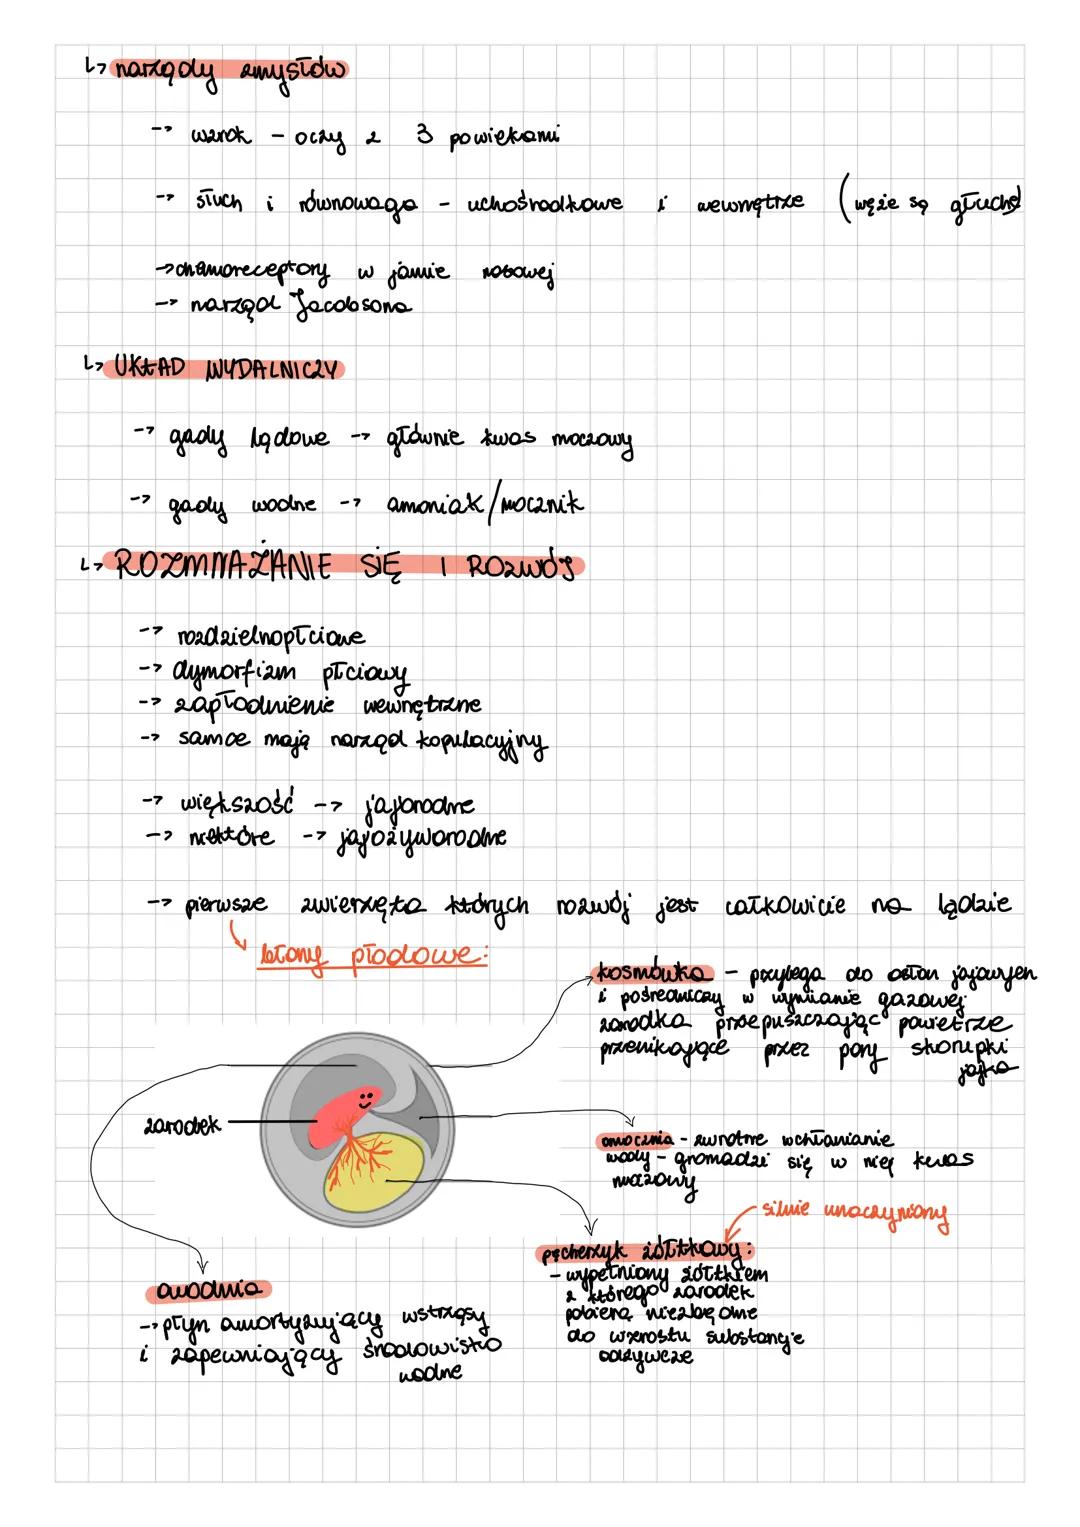 ↳ narządy zmysłów
→ wzrok - oczy z 3 powiekami
→ słuch i równowaga - ucho środkowe i wewnętrze (węże są głuche)
→ chemoreceptory w jamie nosowej
→ narząd Jacobsona
↳ UKŁAD WYDALNICZY
→ gady lądowe → głównie kwas moczowy
→ gady wodne → amoniak/mocznik
↳ ROZMNAŻANIE SIĘ I ROZWÓJ
→ rozdzielnopłciowe
→ dymorfizm płciowy
→ zapłodnienie wewnętrzne
→ samce mają narząd kopulacyjny
→ większość → jajorodne
→ niektóre → jajożyworodne
→ pierwsze zwierzęta których rozwój jest całkowicie na lądzie
błony płodowe:
kosmówka - przylega do osłon jajowych
i pośredniczy w wymianie gazowej
zarodka przepuszczając powietrze
przenikające przez pory skorupki
jajka
zarodek
omocznia - zwrotne wchłanianie
wody - gromadzi się w niej kwas
moczowy
silnie unaczyniony
pęcherzyk żółtkowy:
- wypełniony żółtkiem
z którego zarodek
pobiera niezbędne
do wzrostu substancje
odżywcze
owodnia
→ płyn amortyzujący wstrząsy
i zapewniający środowisko
wodne